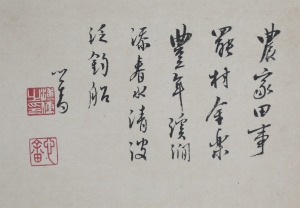 農家田事
罷村舍樂
豐年溪澗
添春水清波
泛釣船
心畬